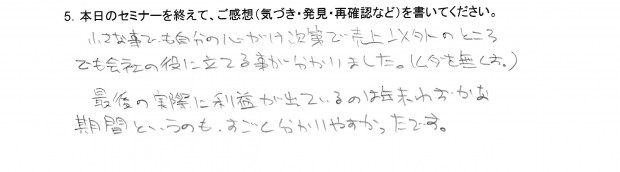 5. 本日のセミナーを終えて、ご感想（気づき・発見・再確認など）を書いてください。
小さな事でも自分の心がけ次第で売上以外のところ
でも会社の役に立てる事が分かりました。(ムダを無くす。)
最後の実際に利益が出ているのは年末わずかな
期間というのも、すごく分かりやすかったです。